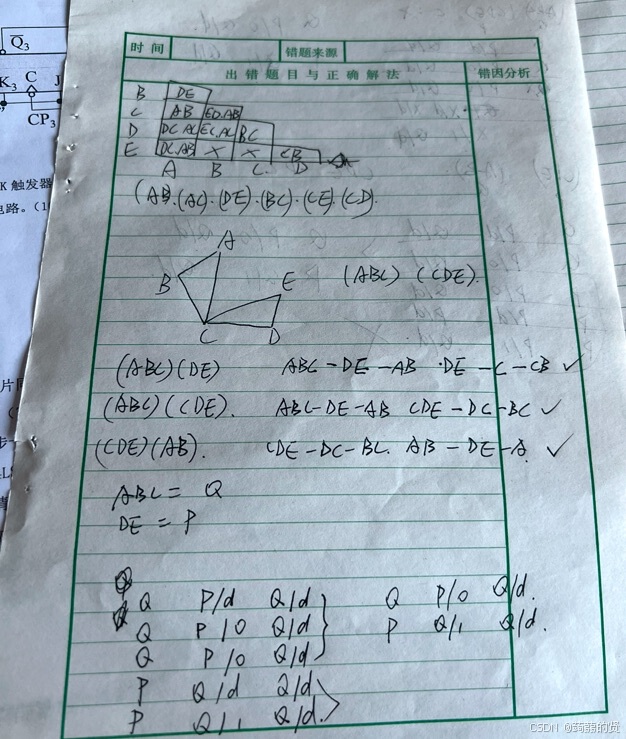 Q̄₃
K₃ C J
CP₃
K 触发器
电路。(1
时间 错题来源
出错题目与正确解法 错因分析
B DE
C AB ED.AB
D DC.AC EC.AC BC
E DC.AB X X CB
A B C. D
(AB).(AC).(DE).(BC).(CE).(CD).
A
B E (ABC) (CDE).
C D
(ABC)(DE) ABC-DE-AB ·DE-C-CB ✓
(ABC)(CDE). ABC-DE-AB CDE-DC-BC ✓
(CDE)(AB). CDE-DC-BC. AB-DE-A. ✓
ABC = Q
DE = P
Q P/d Q/d Q P/0 Q/d.
Q P/0 Q/d P Q/1 Q/d.
Q P/0 Q/d
P Q/d Q/d
P Q/1 Q/d.
CSDN @蒟蒻的贤